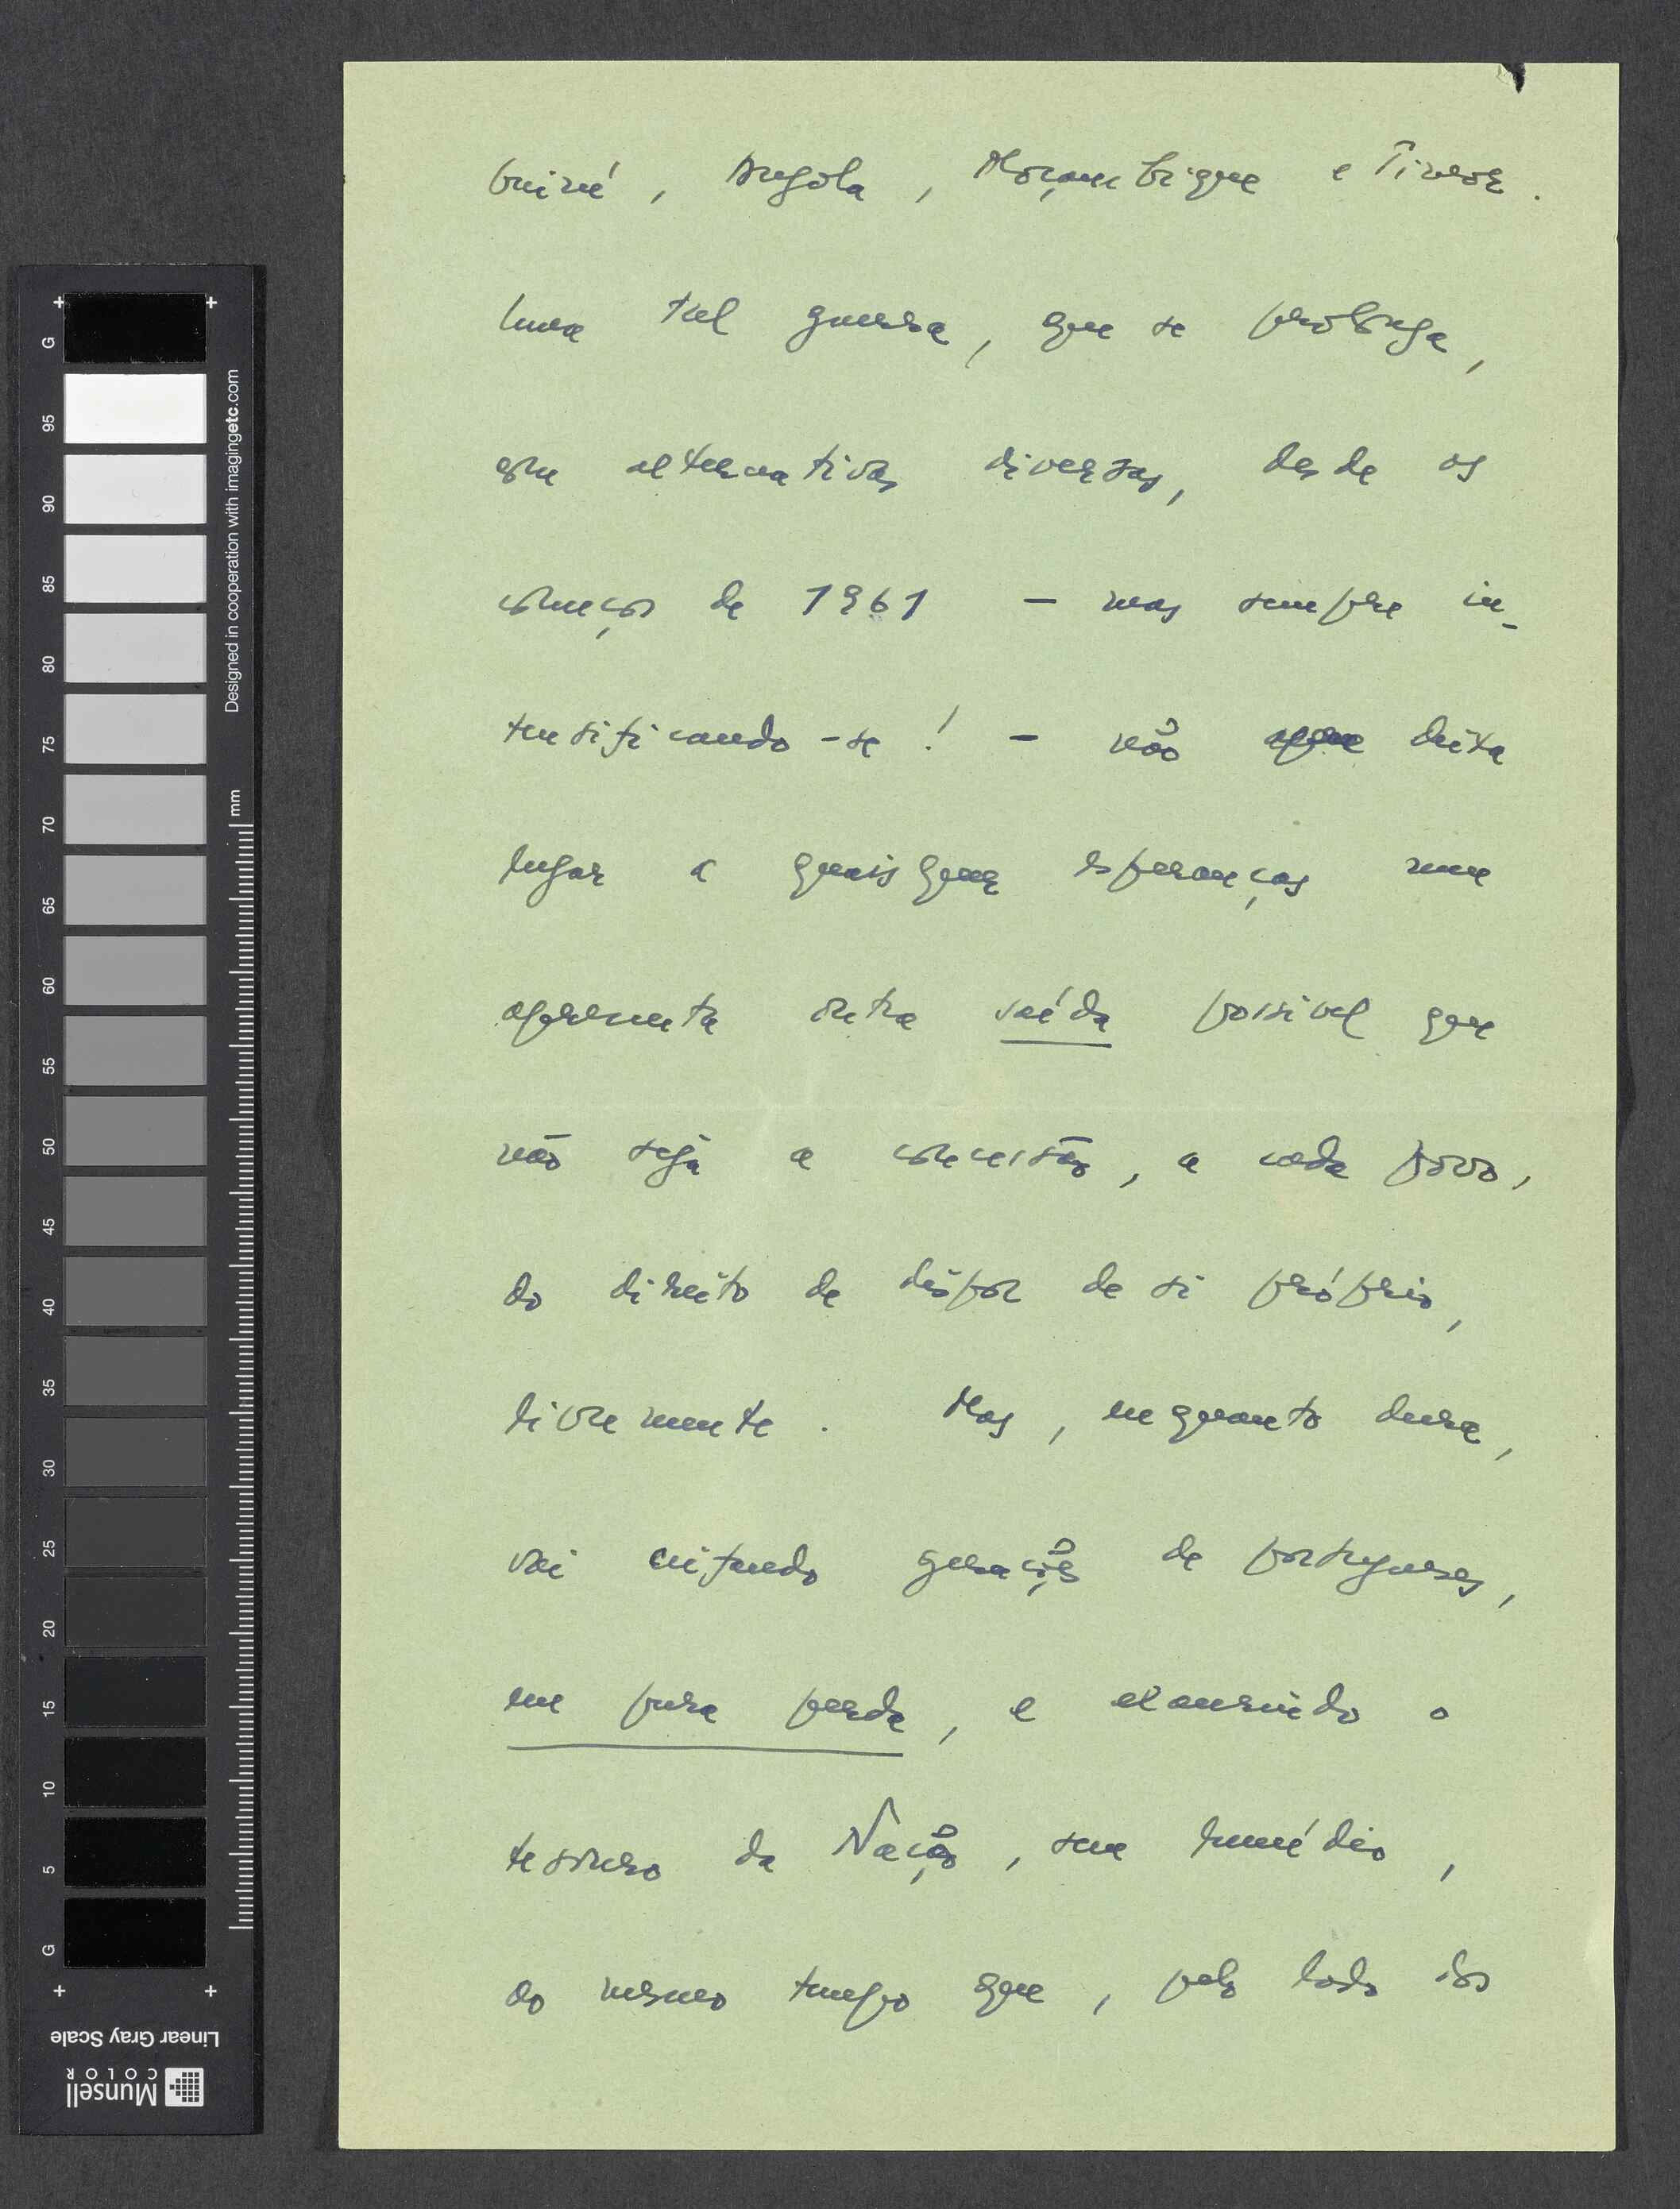 Guiné, Angola, Moçambique e Timor.
Uma tal guerra, que se prolonga,
com alternativas diversas, desde os
começos de 1961 — mas sempre in-
tensificando-se! — não deixa
lugar a quaisquer esperanças nem
apresenta outra saída possivel que
não seja a concessão, a cada povo,
do direito de dispor de si próprio,
livremente. Mas, enquanto dura,
vai ceifando gerações de portugueses,
em pura perda, e exaurindo o
tesouro da Nação, sem remédio,
ao mesmo tempo que, pelo lado dos
G
95
90
85
80
75
70
65
60
55
50
45
40
35
30
25
20
15
10
5
G
mm
Designed in cooperation with imagingetc.com
Linear Gray Scale
Munsell
COLOR